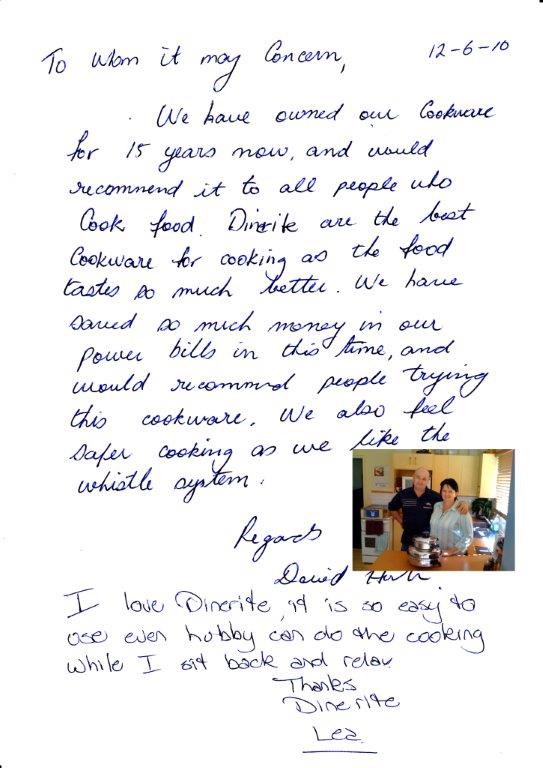 To Whom it may Concern, 12-6-10
We have owned our Cookware
for 15 years now, and would
recommend it to all people who
Cook food. Dinerite are the best
Cookware for cooking as the food
tastes so much better. We have
saved so much money in our
power bills in this time, and
would recommend people trying
this cookware. We also feel
safer cooking as we like the
whistle system.
Regards
David
I love Dinerite, it is so easy to
use even hubby can do the cooking
while I sit back and relax
Thanks
Dinerite
Lea